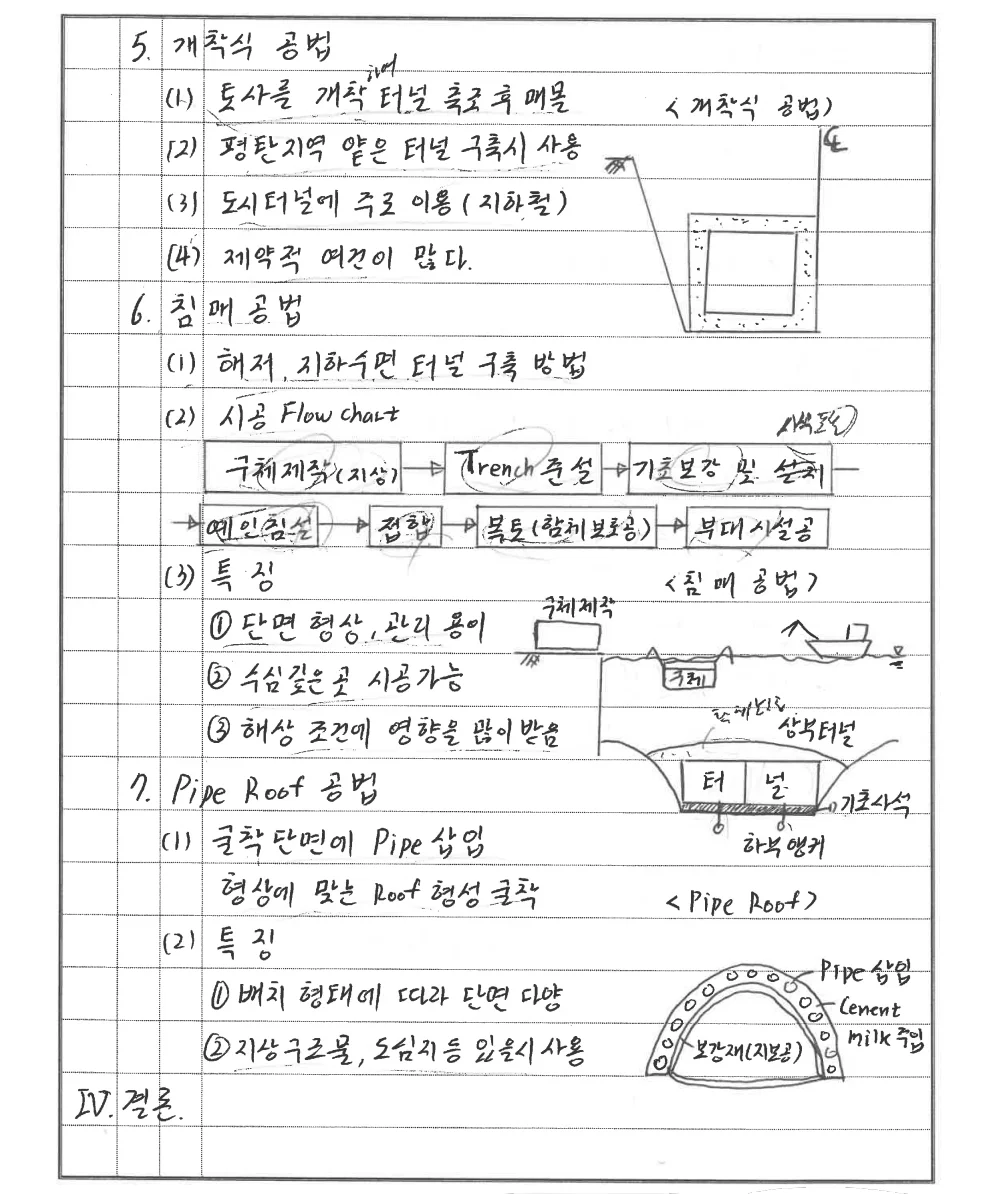 5. 개착식 공법
(1) 토사를 개착하여 터널 축조 후 매몰
<개착식 공법>
(2) 평탄지역 얕은 터널 구축시 사용
(3) 도시터널에 주로 이용 (지하철)
(4) 제약적 여건이 많다.
6. 침매 공법
(1) 해저, 지하수면 터널 구축 방법
(2) 시공 Flow chart
구체제작(지상)
Trench 준설
기초보강 및 설치
예인침설
접합
복토(함체보호공)
부대시설공
(3) 특징
<침매 공법>
구체제작
① 단면 형상, 관리 용이
② 수심깊은곳 시공가능
구체
③ 해상 조건에 영향을 많이 받음
상부터널
터널
기초사석
하부앵커
7. Pipe Roof 공법
(1) 굴착단면에 Pipe 삽입
형상에 맞는 Roof 형성 굴착
<Pipe Roof>
(2) 특징
Pipe 삽입
① 배치 형태에 따라 단면 다양
Cement
milk 주입
② 지상구조물, 도심지등 있을시 사용
보강재(지보공)
IV. 결론.